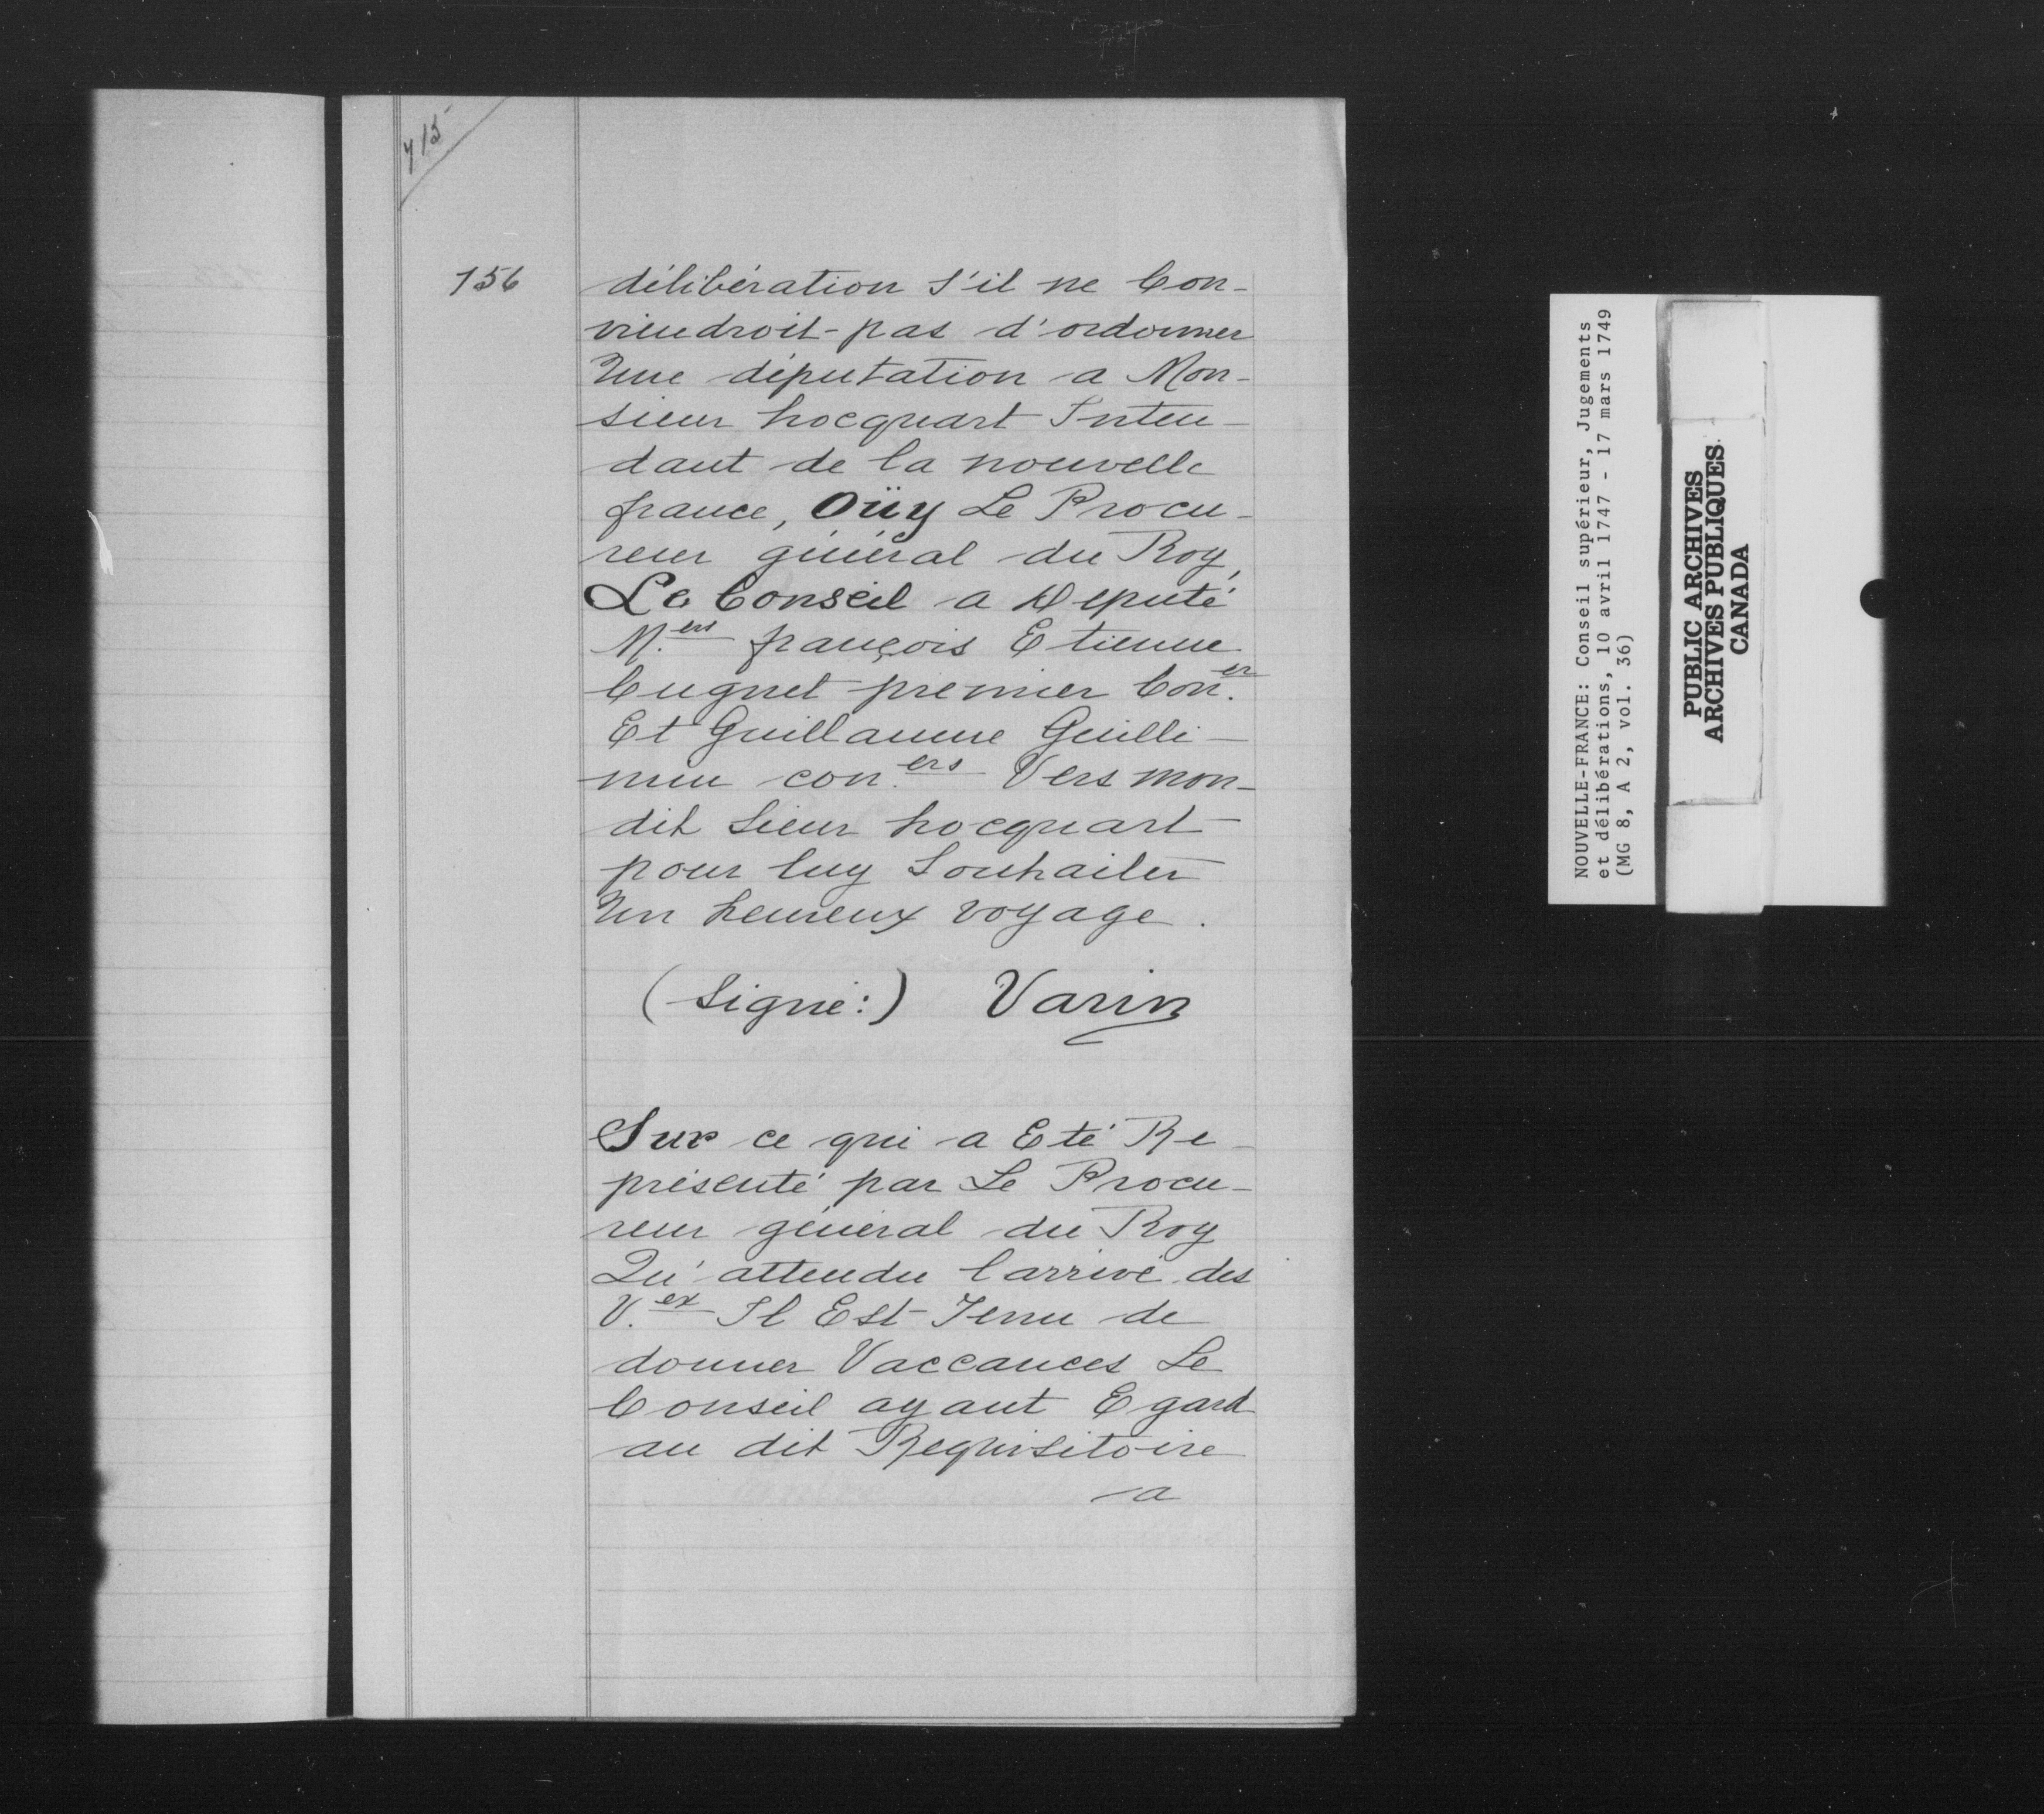 715
156
délibération s'il ne Con-
viendroit-pas d'ordonner
Une députation a Mon-
sieur hocquart Inten-
dant de la nouvelle
france, Oüy Le Procu-
reur général du Roy,
Le Conseil a Député
M.ers françois Etienne
Cugnet premier Con.er
Et Guillaume Guilli-
min con.ers Vers mon-
dit Sieur hocquart
pour luy Souhaiter
Un heureux voyage.
(Signé:) Varin
Sur ce qui a Eté Re-
présenté par Le Procu-
reur général du Roy
Qu'attendu l'arrivé des
V.ex Il Est Tenu de
donner Vaccances Le
Conseil ayant Egard
au dit Requisitoire
a
NOUVELLE-FRANCE: Conseil supérieur, Jugements
et délibérations, 10 avril 1747 - 17 mars 1749
(MG 8, A 2, vol. 36)
PUBLIC ARCHIVES
ARCHIVES PUBLIQUES
CANADA